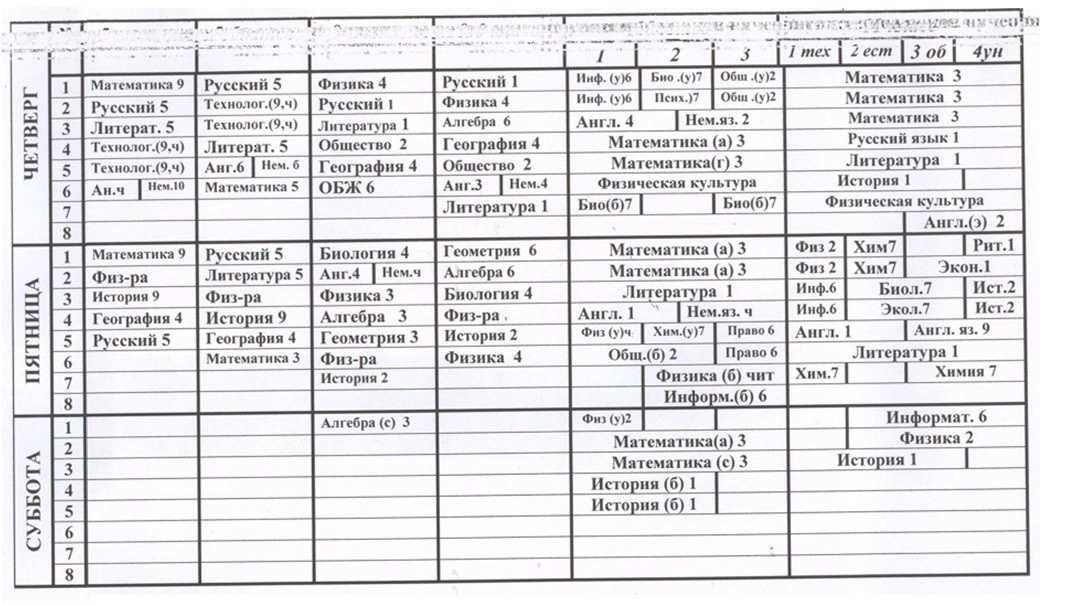 1 2 3 1 тех 2 ест 3 об 4ун
ЧЕТВЕРГ
1 Математика 9 Русский 5 Физика 4 Русский 1 Инф. (у)6 Био .(у)7 Общ .(у)2 Математика 3
2 Русский 5 Технолог.(9,ч) Русский 1 Физика 4 Инф. (у)6 Псих.)7 Общ .(у)2 Математика 3
3 Литерат. 5 Технолог.(9,ч) Литература 1 Алгебра 6 Англ. 4 Нем.яз. 2 Математика 3
4 Технолог.(9,ч) Литерат. 5 Общество 2 География 4 Математика (а) 3 Русский язык 1
5 Технолог.(9,ч) Анг.6 Нем. 6 География 4 Общество 2 Математика(г) 3 Литература 1
6 Ан.ч Нем.10 Математика 5 ОБЖ 6 Анг.3 Нем.4 Физическая культура История 1
7 Литература 1 Био(б)7 Био(б)7 Физическая культура
8 Англ.(э) 2
ПЯТНИЦА
1 Математика 9 Русский 5 Биология 4 Геометрия 6 Математика (а) 3 Физ 2 Хим7 Рит.1
2 Физ-ра Литература 5 Анг.4 Нем.ч Алгебра 6 Математика (а) 3 Физ 2 Хим7 Экон.1
3 История 9 Физ-ра Физика 3 Биология 4 Литература 1 Инф.6 Биол.7 Ист.2
4 География 4 История 9 Алгебра 3 Физ-ра Англ. 1 Нем.яз. ч Инф.6 Экол.7 Ист.2
5 Русский 5 География 4 Геометрия 3 История 2 Физ (у)ч Хим.(у)7 Право 6 Англ. 1 Англ. яз. 9
6 Математика 3 Физ-ра Физика 4 Общ.(б) 2 Право 6 Литература 1
7 История 2 Физика (б) чит Хим.7 Химия 7
8 Информ.(б) 6
СУББОТА
1 Алгебра (с) 3 Физ (у)2 Информат. 6
2 Математика(а) 3 Физика 2
3 Математика (с) 3 История 1
4 История (б) 1
5 История (б) 1
6
7
8